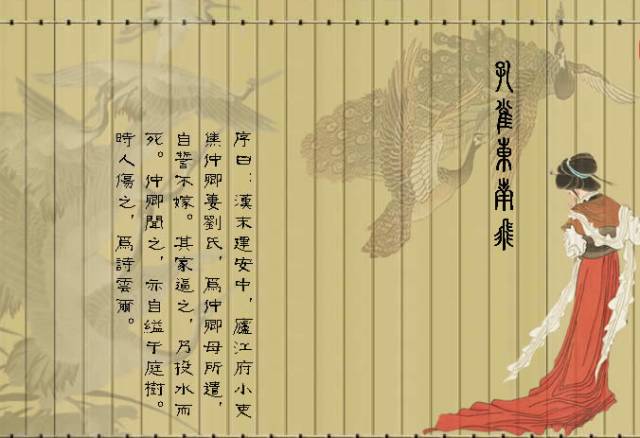 孔雀東南飛
序曰：漢末建安中，廬江府小吏
焦仲卿妻劉氏，爲仲卿母所遣，
自誓不嫁。其家逼之，乃投水而
死。仲卿聞之，亦自縊于庭樹。
時人傷之，爲詩雲爾。